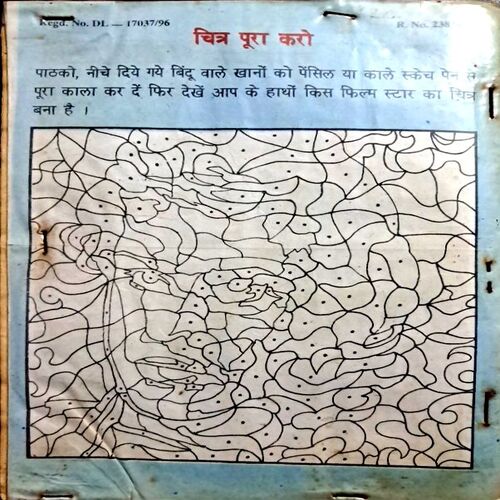 Regd. No. DL — 17037/96
R. No. 238
चित्र पूरा करो
पाठको, नीचे दिये गये बिंदू वाले खानों को पेंसिल या काले स्केच पेन से
पूरा काला कर दें फिर देखें आप के हाथों किस फिल्म स्टार का चित्र
बना है ।